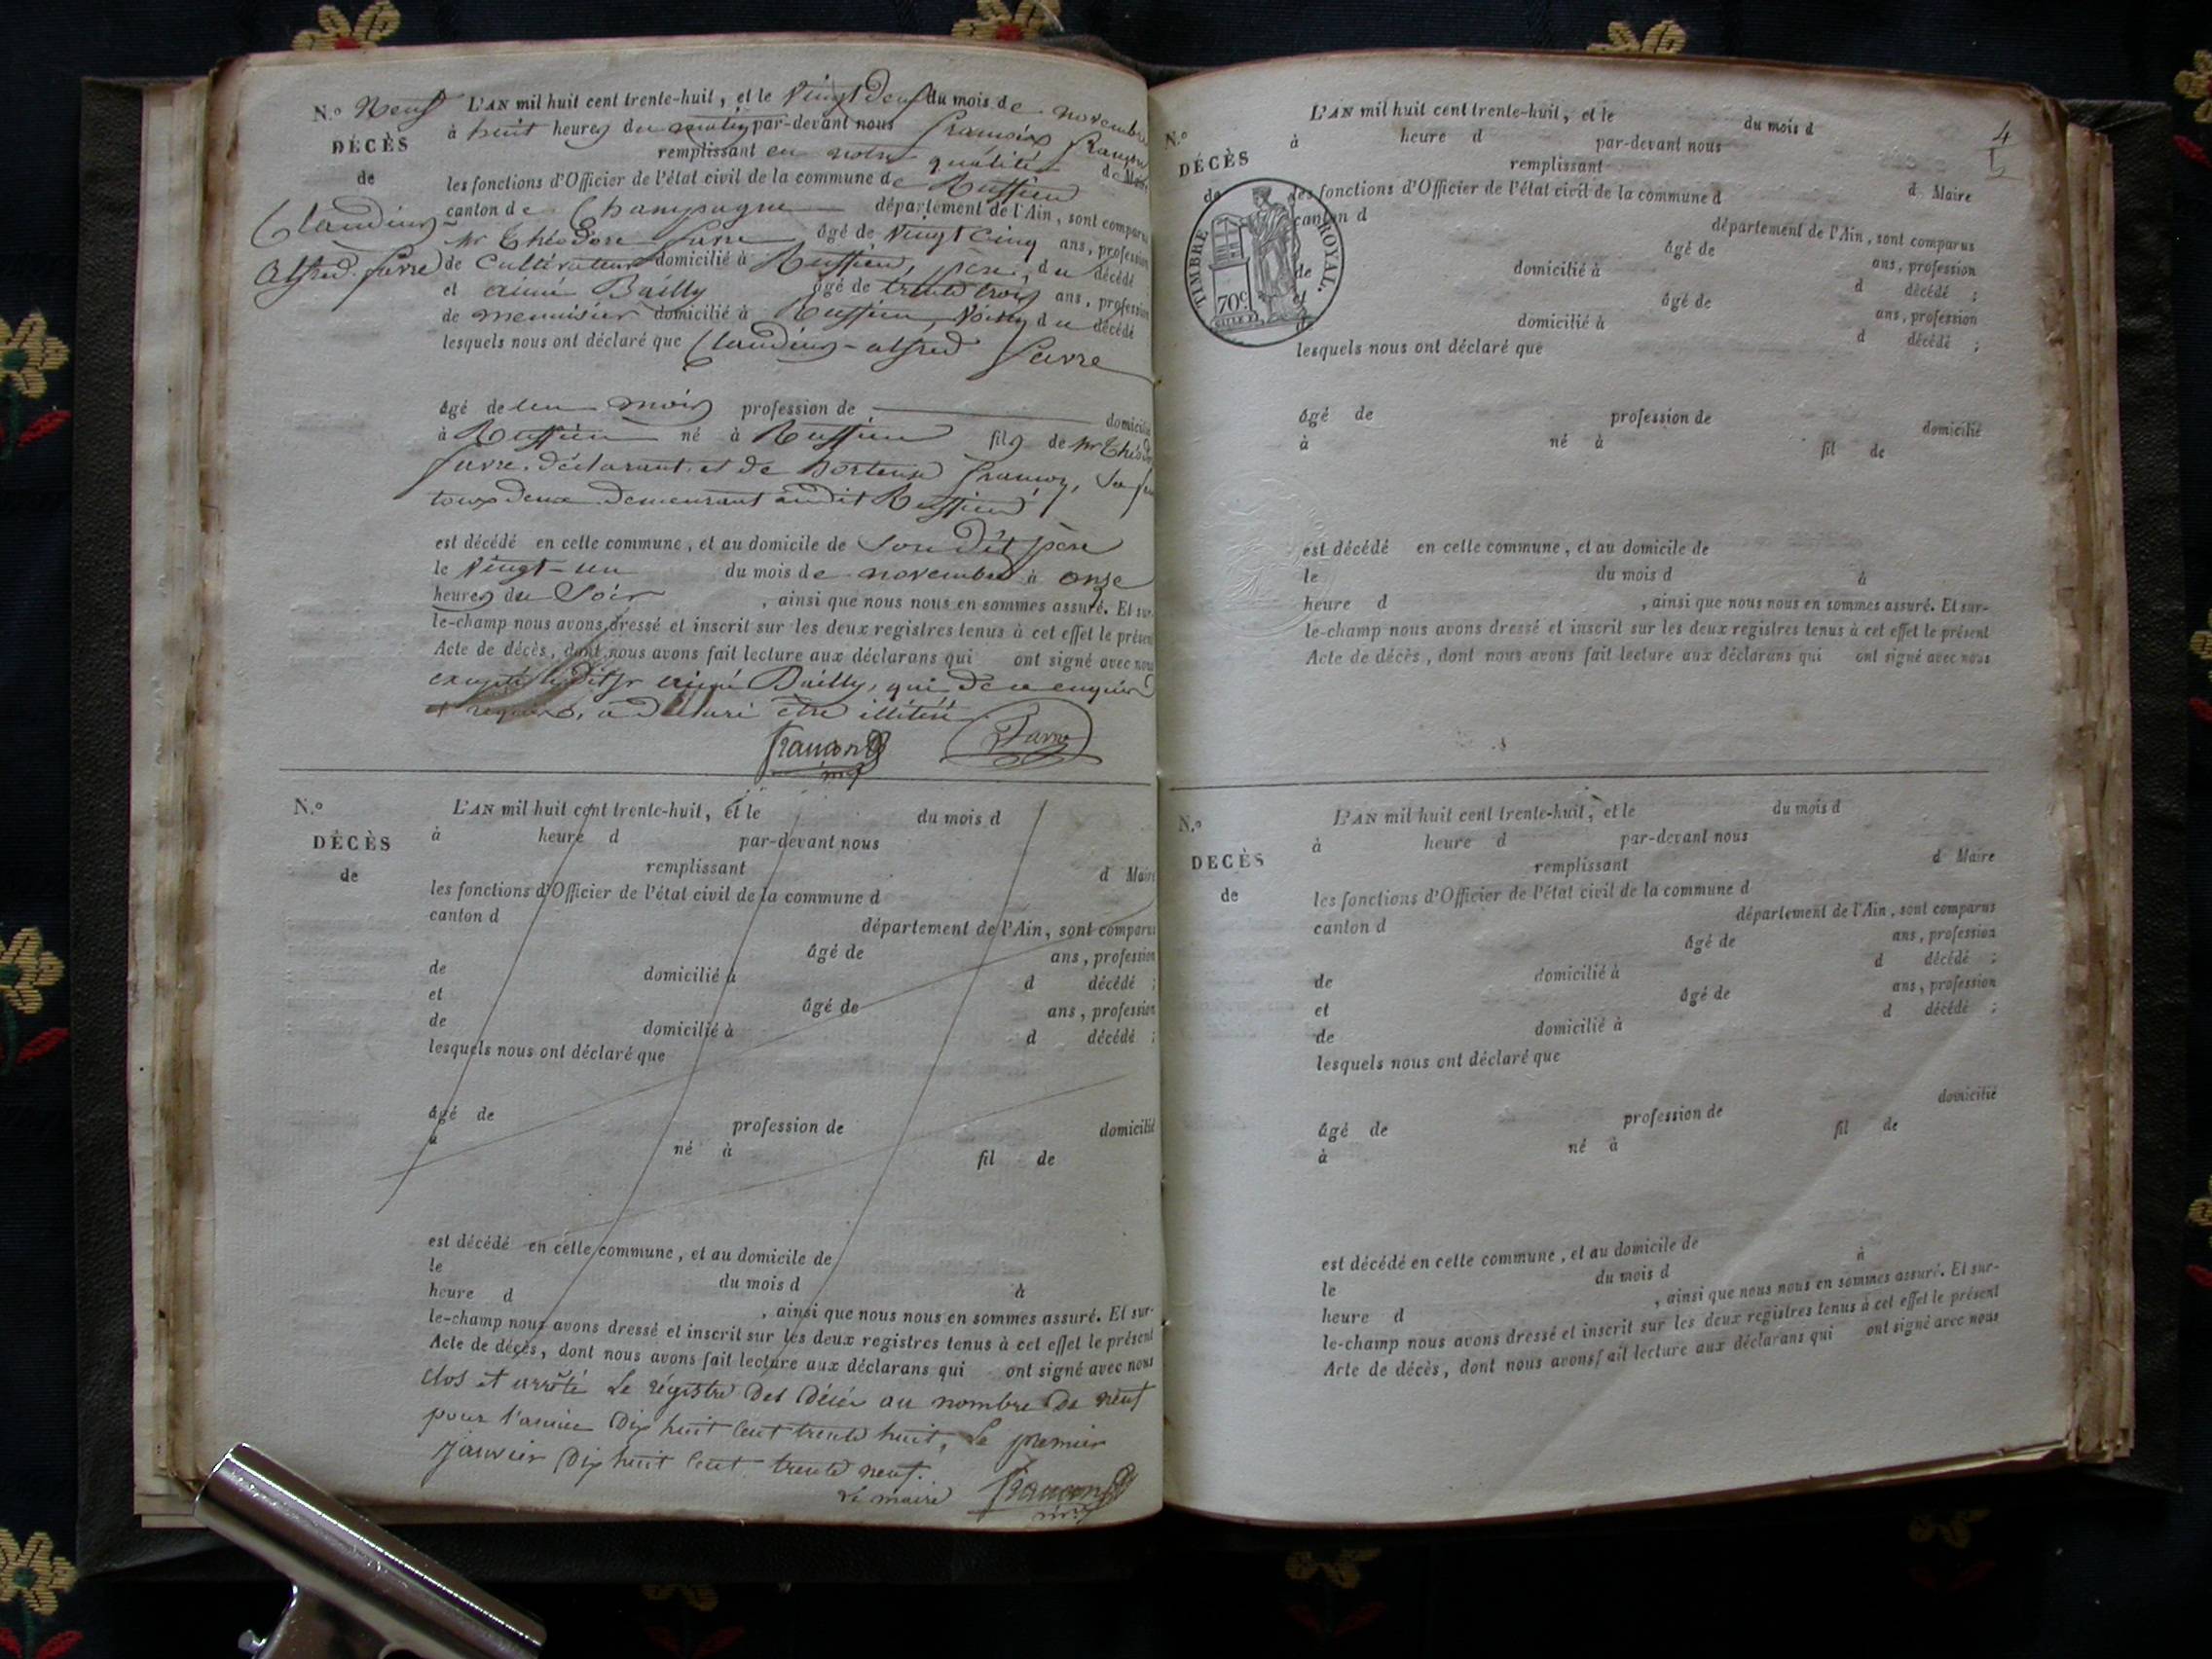 N.º Neuf
DÉCÈS
de
Claudius
Alfred favre
L'AN mil huit cent trente-huit, et le vingt deux du mois de novembre
à huit heures du matin par-devant nous françois françon
remplissant en notre qualité de Maire
les fonctions d'Officier de l'état civil de la commune de Ruffieu
canton de Champagne département de l'Ain, sont comparus
mr Théodore favre âgé de vingt cinq ans, profession
de Cultivateur domicilié à Ruffieu, père, du décédé
et aimé Bailly âgé de trente trois ans, profession
de menuisier domicilié à Ruffieu, voisin du décédé
lesquels nous ont déclaré que Claudius-alfred favre
âgé de un mois profession de domicilié
à Ruffieu né à Ruffieu fils de mr Théodore
favre, déclarant et de hortense françon, Sa
tous deux demeurant audit Ruffieu
est décédé en cette commune, et au domicile de Son dit père
le vingt-un du mois de novembre à onze
heures du Soir, ainsi que nous nous en sommes assuré. Et sur-
le-champ nous avons dressé et inscrit sur les deux registres tenus à cet effet le présent
Acte de décès, dont nous avons fait lecture aux déclarans qui ont signé avec nous
excepté ledit Sr aimé Bailly, qui de ce enquis
et requis, a déclaré être illitéré
françon
Favre
N.º
DÉCÈS
de
L'AN mil huit cent trente-huit, et le du mois d
à heure d par-devant nous
remplissant d Maire
les fonctions d'Officier de l'état civil de la commune d
canton d département de l'Ain, sont comparus
âgé de ans, profession
de domicilié à d décédé ;
et âgé de ans, profession
de domicilié à d décédé ;
lesquels nous ont déclaré que
âgé de profession de domicilié
à né à fil de
est décédé en cette commune, et au domicile de
le du mois d à
heure d , ainsi que nous nous en sommes assuré. Et sur-
le-champ nous avons dressé et inscrit sur les deux registres tenus à cet effet le présent
Acte de décès, dont nous avons fait lecture aux déclarans qui ont signé avec nous
clos et arrêté Le régistre des Décès au nombre De neuf
pour l'année Dix huit Cent trente huit, Le premier
janvier Dix huit Cent trente neuf.
Le maire françon
4
N.º
DÉCÈS
de
TIMBRE ROYAL.
70c
L'AN mil huit cent trente-huit, et le du mois d
à heure d par-devant nous
remplissant d Maire
les fonctions d'Officier de l'état civil de la commune d
canton d département de l'Ain, sont comparus
âgé de ans, profession
de domicilié à d décédé ;
et âgé de ans, profession
de domicilié à d décédé ;
lesquels nous ont déclaré que
âgé de profession de domicilié
à né à fil de
est décédé en cette commune, et au domicile de
le du mois d à
heure d , ainsi que nous nous en sommes assuré. Et sur-
le-champ nous avons dressé et inscrit sur les deux registres tenus à cet effet le présent
Acte de décès, dont nous avons fait lecture aux déclarans qui ont signé avec nous
N.º
DÉCÈS
de
L'AN mil huit cent trente-huit, et le du mois d
à heure d par-devant nous
remplissant d Maire
les fonctions d'Officier de l'état civil de la commune d
canton d département de l'Ain, sont comparus
âgé de ans, profession
de domicilié à d décédé ;
et âgé de ans, profession
de domicilié à d décédé ;
lesquels nous ont déclaré que
âgé de profession de domicilié
à né à fil de
est décédé en cette commune, et au domicile de
le du mois d à
heure d , ainsi que nous nous en sommes assuré. Et sur-
le-champ nous avons dressé et inscrit sur les deux registres tenus à cet effet le présent
Acte de décès, dont nous avons fait lecture aux déclarans qui ont signé avec nous